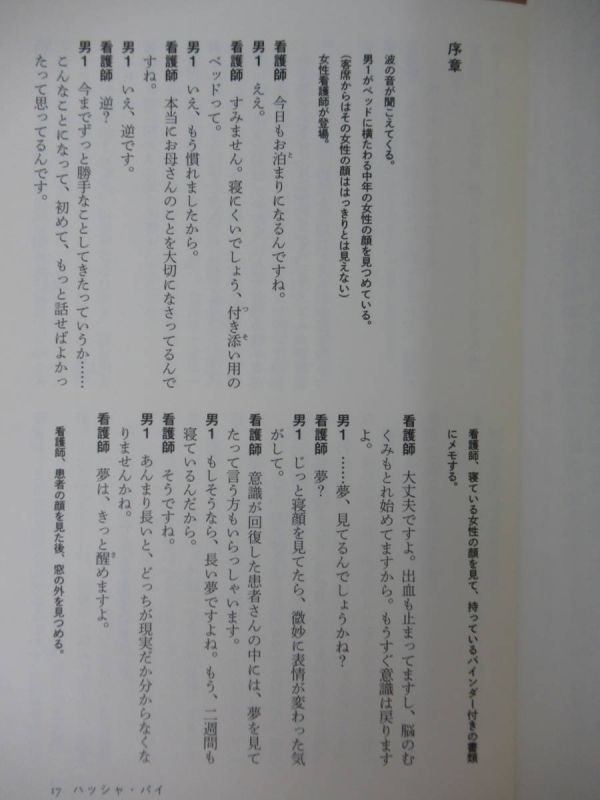 序章
波の音が聞こえてくる。
男1がベッドに横たわる中年の女性の顔を見つめている。
(客席からはその女性の顔ははっきりとは見えない)
女性看護師が登場。
看護師　今日もお泊まりになるんですね。
男1　ええ。
看護師　すみません。寝にくいでしょう、付き添い用の
ベッドって。
男1　いえ、もう慣れましたから。
看護師　本当にお母さんのことを大切になさってるんで
すね。
男1　いえ、逆です。
看護師　逆?
男1　今までずっと勝手なことしてきたっていうか……
こんなことになって、初めて、もっと話せばよかっ
たって思ってるんです。
看護師、寝ている女性の顔を見て、持っているバインダー付きの書類
にメモする。
看護師　大丈夫ですよ。出血も止まってますし、脳のむ
くみもとれ始めてますから。もうすぐ意識は戻ります
よ。
男1　……夢、見てるんでしょうかね?
看護師　夢?
男1　じっと寝顔を見てたら、微妙に表情が変わった気
がして。
看護師　意識が回復した患者さんの中には、夢を見て
たって言う方もいらっしゃいます。
男1　もしそうなら、長い夢ですよね。もう、二週間も
寝ているんだから。
看護師　そうですね。
男1　あんまり長いと、どっちが現実だか分からなくな
りませんかね。
看護師　夢は、きっと醒めますよ。
看護師、患者の顔を見た後、窓の外を見つめる。
17 ハッシャ・バイ